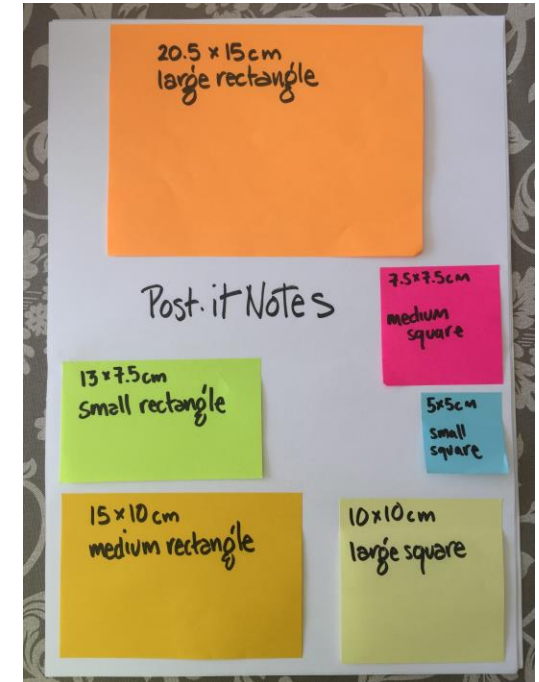 20.5 x 15 cm
large rectangle
Post.it Notes
7.5x7.5cm
medium
square
13 x 7.5 cm
small rectangle
5x5cm
small
square
15 x 10 cm
medium rectangle
10x10 cm
large square